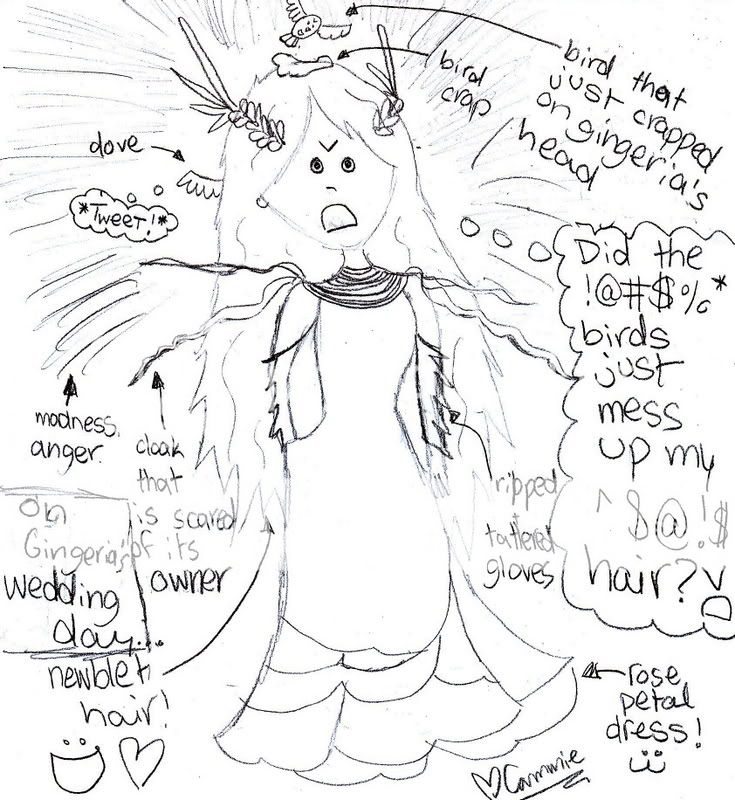 bird
crap
bird that
just crapped
on gingeria's
head
dove
*Tweet!*
Did the
!@#$%*
birds
just
mess
up my
^$@!$
hair?
madness.
anger.
cloak
that
is scared
of its
owner
ripped
tattered
gloves
On
Gingeria's
wedding
day...
newblet
hair!
rose
petal
dress!
Cammie